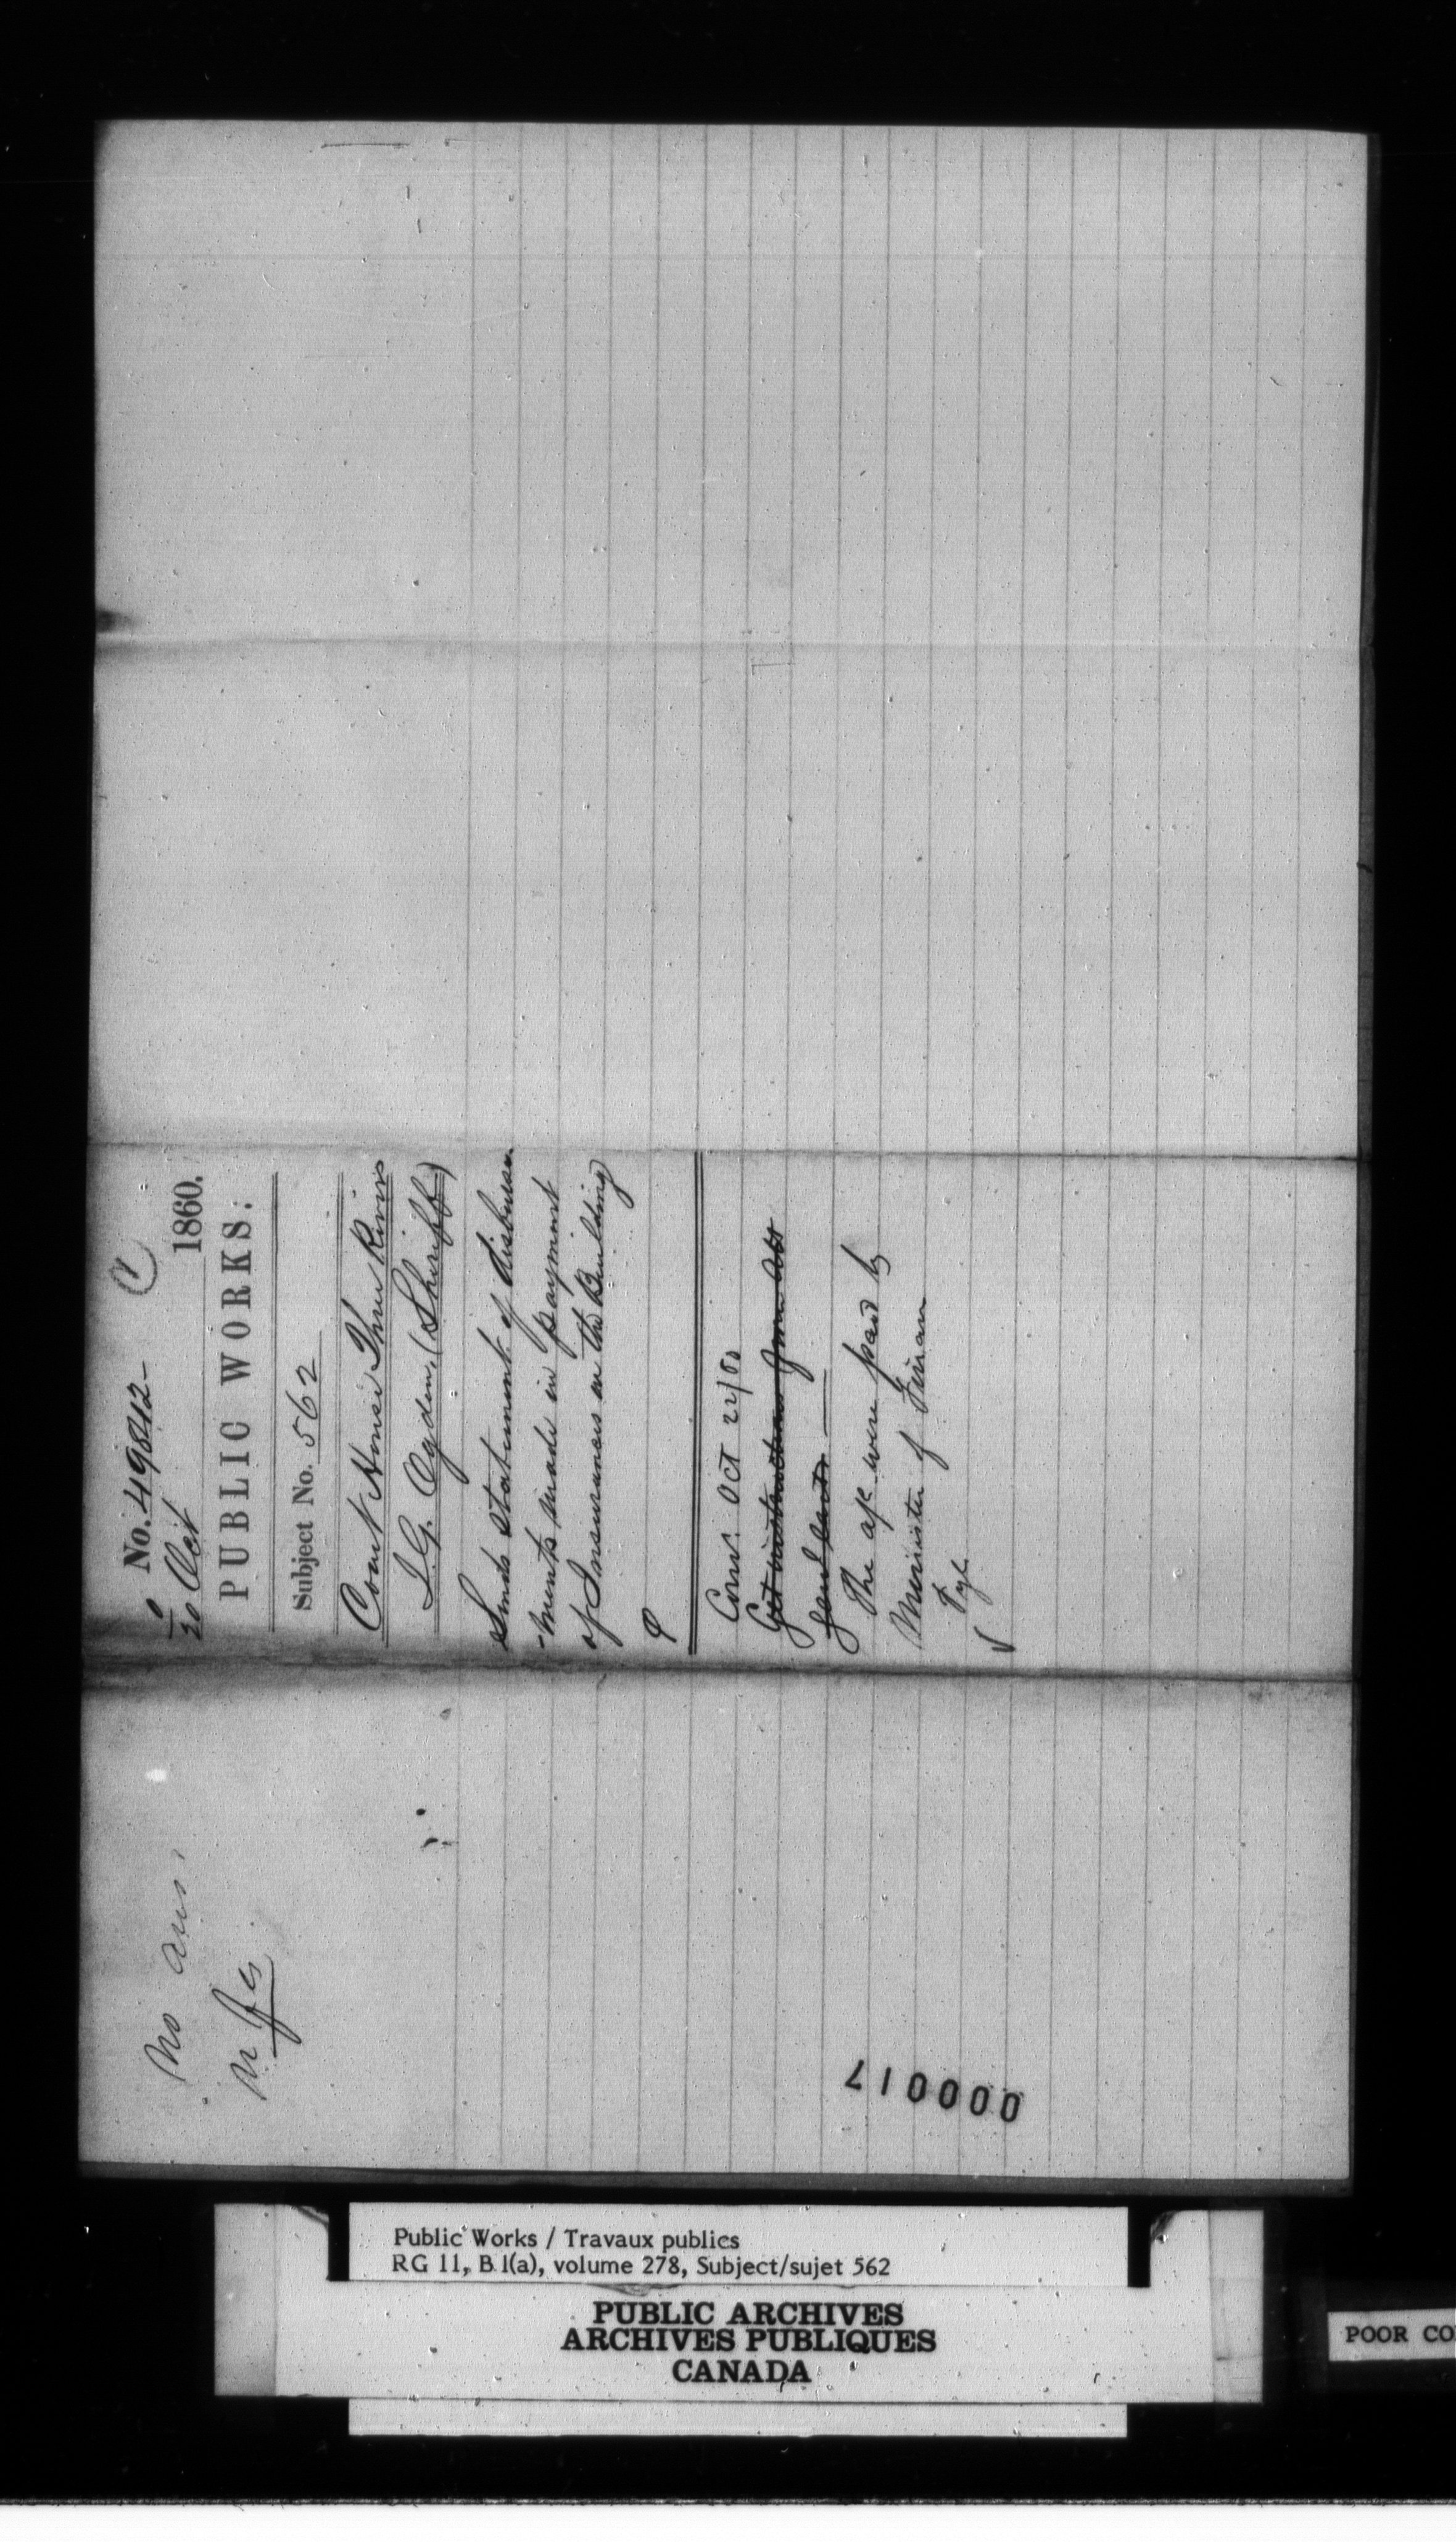 No. 49842
20 Oct 1860.
PUBLIC WORKS:
Subject No. 562
Court House Three Rivers
I. G. Ogden, (Sheriff)
Sends statement of disburse
-ments made in payment
of Insurances on the Building
Comr. Oct 22/60
Get instructions from Att
Genl
The a/c were paid by
Minister of Finan
Fyl
No ans
000017
Public Works / Travaux publics
RG 11, B 1(a), volume 278, Subject/sujet 562
PUBLIC ARCHIVES
ARCHIVES PUBLIQUES
CANADA
POOR CO